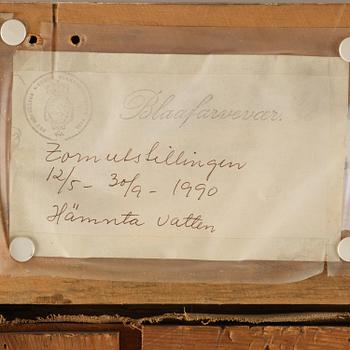 Blaafarveværk.
Zornutstillingen
12/5 - 30/9 - 1990
Hämnta vatten